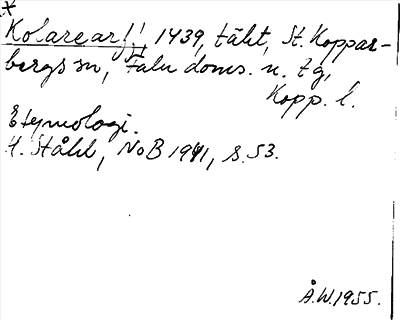 *
Kolarearf!! 1439, täkt, St. Koppar-
bergs sn, Falu doms. o. tg,
Kopp. l.
Etymologi.
H. Ståhl, NoB 1941, s. 53.
Å.W. 1955.